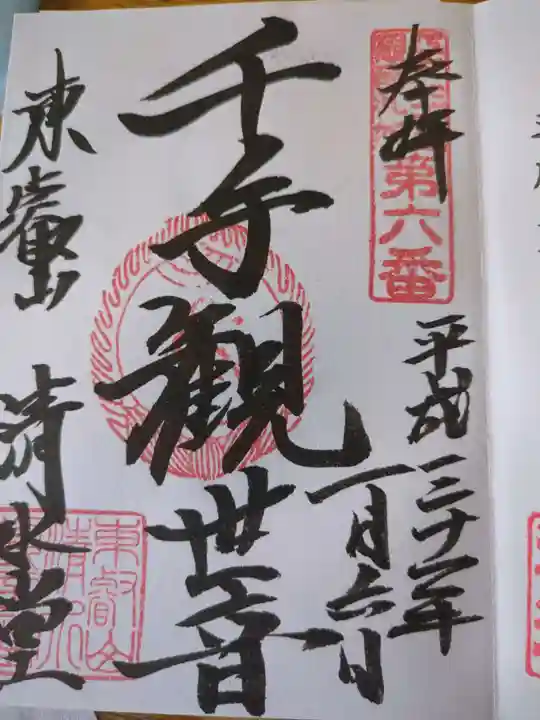 奉拝
第六番
平成三十一年
一月六日
千手觀世音
東叡山
清水堂
東叡山
清水